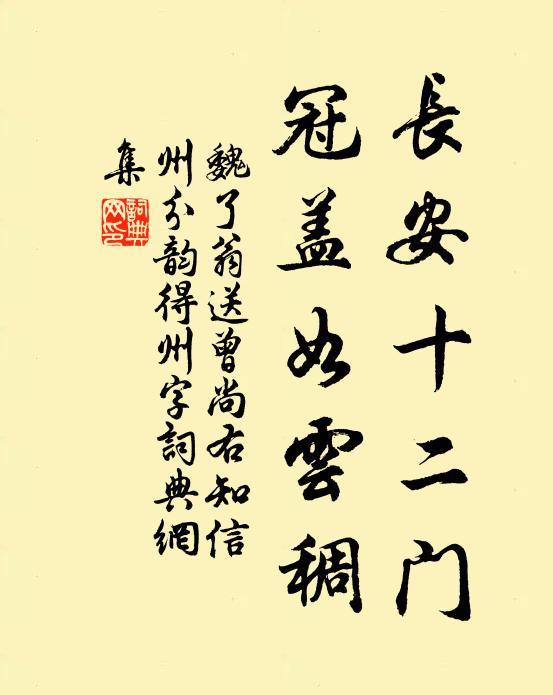 長安十二门
冠盖如雲稠
魏了翁送曾尚右知信
州分韵得州字詞典網
集
詞典
网印